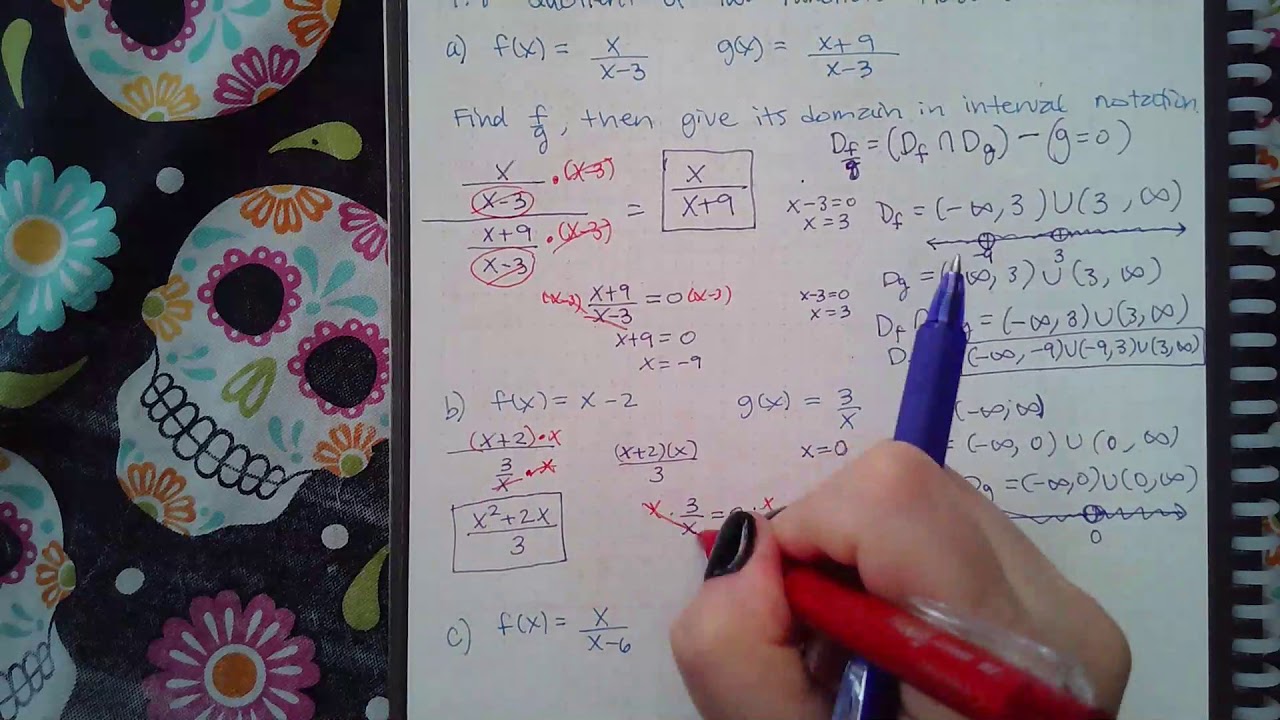 a) f(x) = x/(x-3) g(x) = (x+9)/(x-3)
Find f/g, then give its domain in interval notation
D f/g = (Df ∩ Dg) - (g=0)
x/(x-3) · (x-3)
(x+9)/(x-3) · (x-3)
= x/(x+9)
x-3=0
x=3
Df = (-∞, 3) ∪ (3, ∞)
-9 3
Dg = (-∞, 3) ∪ (3, ∞)
x-3=0
x=3
(x-3) (x+9)/(x-3) = 0(x-3)
x+9=0
x=-9
Df ∩ = (-∞, 3) ∪ (3, ∞)
D (-∞, -9) ∪ (-9, 3) ∪ (3, ∞)
b) f(x) = x-2 g(x) = 3/x
(-∞, ∞)
(x+2)·x
3/x · x
(x+2)(x)/3
x=0
= (-∞, 0) ∪ (0, ∞)
= (-∞, 0) ∪ (0, ∞)
0
(x²+2x)/3
x · 3/x = · x
c) f(x) = x/(x-6)